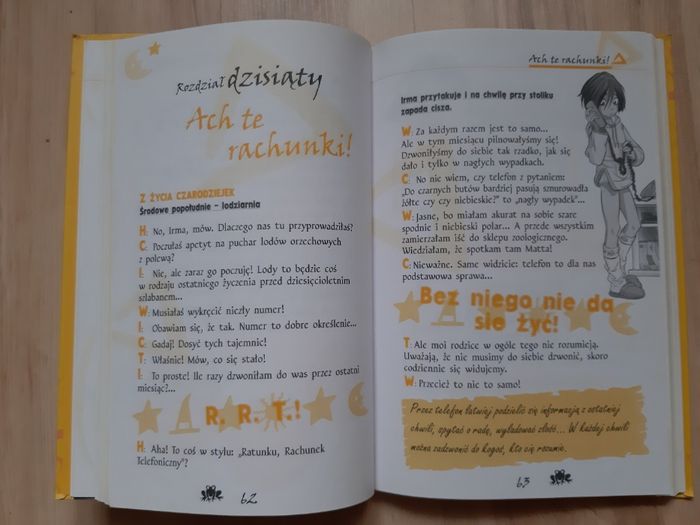 Rozdział dzisiąty
Ach te
rachunki!
Z ŻYCIA CZARODZIEJEK
Środowe popołudnie – lodziarnia
H: No, Irma, mów. Dlaczego nas tu przyprowadziłaś?
C: Poczułaś apetyt na puchar lodów orzechowych
z polewą?
I: Nie, ale zaraz go poczuję! Lody to będzie coś
w rodzaju ostatniego życzenia przed dziesięcioletnim
szlabanem...
W: Musiałaś wykręcić niezły numer!
I: Obawiam się, że tak. Numer to dobre określenie...
C: Gadaj! Dosyć tych tajemnic!
T: Właśnie! Mów, co się stało!
I: To proste! Ile razy dzwoniłam do was przez ostatni
miesiąc?...
R. R. T.!
H: Aha! To coś w stylu: „Ratunku, Rachunek
Telefoniczny”?
62
Ach te rachunki!
Irma przytakuje i na chwilę przy stoliku
zapada cisza.
W: Za każdym razem jest to samo...
Ale w tym miesiącu pilnowałyśmy się!
Dzwoniłyśmy do siebie tak rzadko, jak się
dało i tylko w nagłych wypadkach.
C: No nie wiem, czy telefon z pytaniem:
„Do czarnych butów bardziej pasują sznurowadła
żółte czy czy niebieskie?” to „nagły wypadek”...
W: Jasne, bo miałam akurat na sobie szare
spodnie i niebieski polar... A przede wszystkim
zamierzałam iść do sklepu zoologicznego.
Wiedziałam, że spotkam tam Matta!
C: Nieważne. Same widzicie: telefon to dla nas
podstawowa sprawa...
Bez niego nie da
się żyć!
T: Ale moi rodzice w ogóle tego nie rozumieją.
Uważają, że nie musimy do siebie dzwonić, skoro
codziennie się widujemy.
W: Przecież to nie to samo!
Przez telefon łatwiej podzielić się informacją z ostatniej
chwili, spytać o radę, wyładować złość... W każdej chwili
można zadzwonić do kogoś, kto cię rozumie.
63